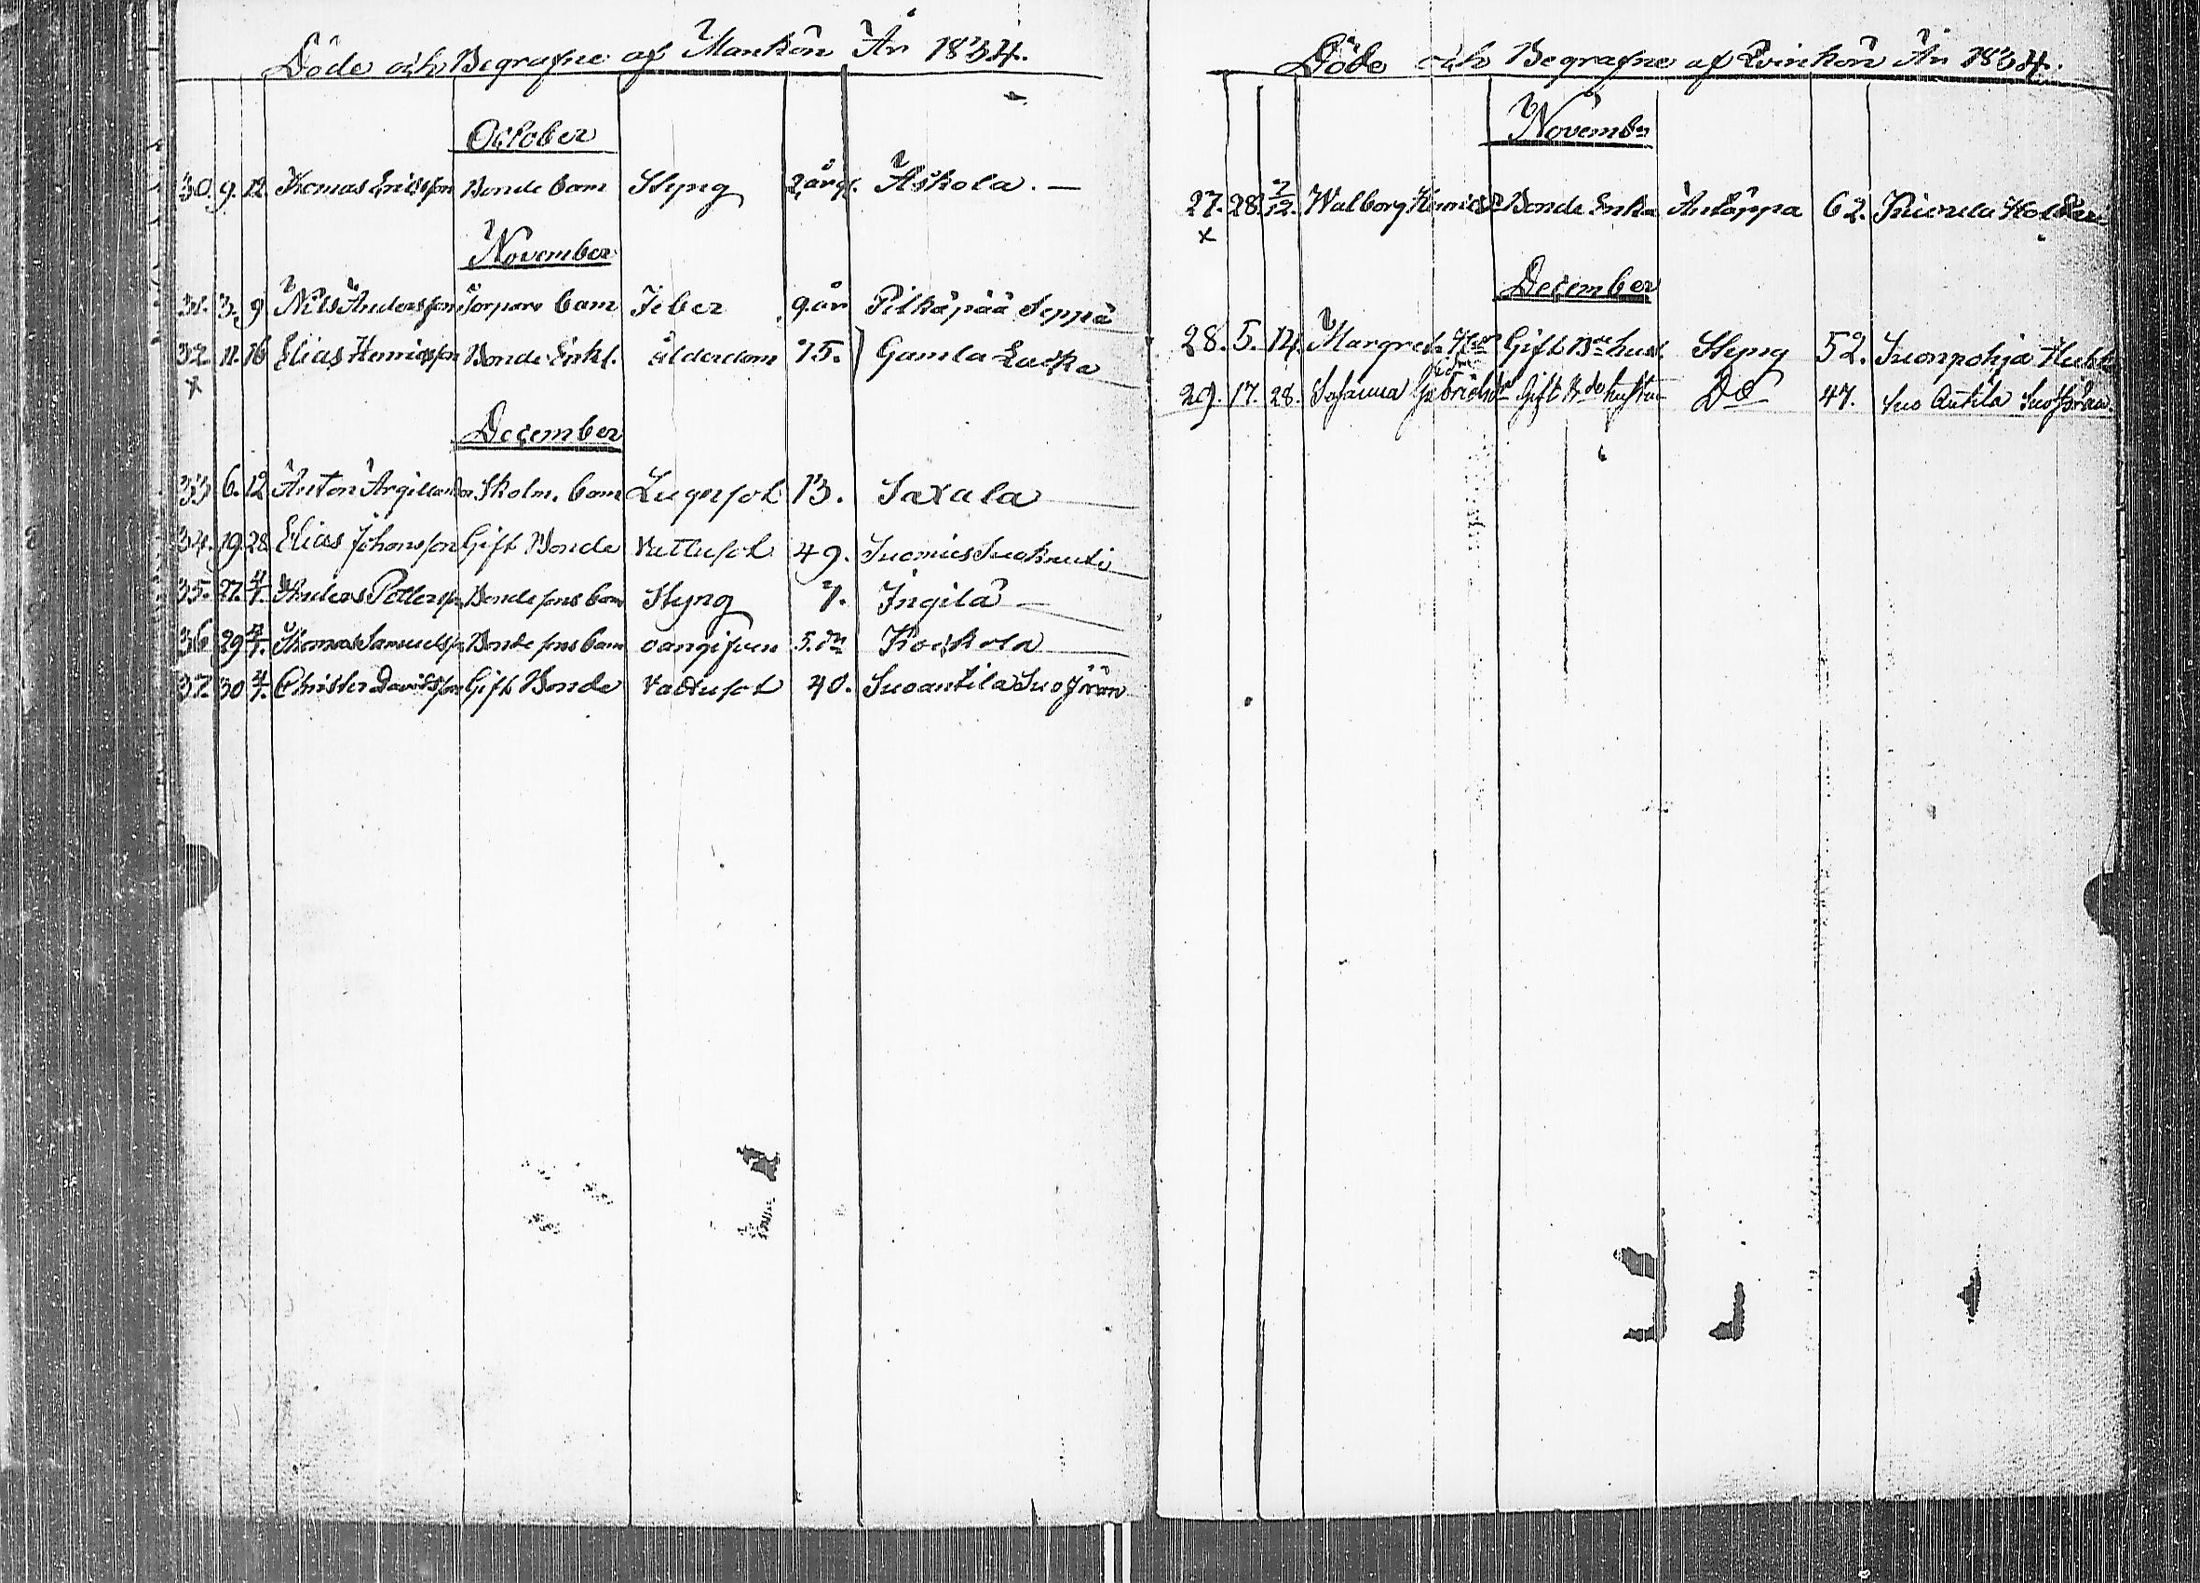 Döde och Begrafne af Mankön År 1834.
October
30. 9. 12. Thomas Ericsson Bonde barn Styng 2 år Askola. —
November
31. 3. 9 Nils Andersson Torpare barn Feber 9 år Pilkäpää Seppä
32. 11. 16 Elias Henricsson Bonde Enkl. ålderdom 75. Gamla Laska
x
December
33 6. 12 Anton Argillander Skolm. barn Lugnsot 13. Saxala
34. 19. 28 Elias Johansson Gift Bonde Vattusot 49. Suomies Suoknuti
35. 27. 4/1. Anders Pettersson Bonde sons barn Styng 7. Ingilä —
36 29 4/1. Thomas Samuelsson Bonde sons barn oangifven 5. dr Kockola
37 30 4/1. Christer Davidsson Gift Bonde Vattusot 40. Suoantila Suo Jörän
Döde och Begrafne af Qvinkön År 1834.
November
27. 28. 7/12. Walborg Henricsd Bonde Enka Andtäppa 62.
x
December
28. 5. 14. Margreta Gift Bde hust. Styng 52. Suonpohja
29. 17. 28. Susanna Gabrielsdr Gift Bde hustru Do 47. Suo Antila Suo Jöran